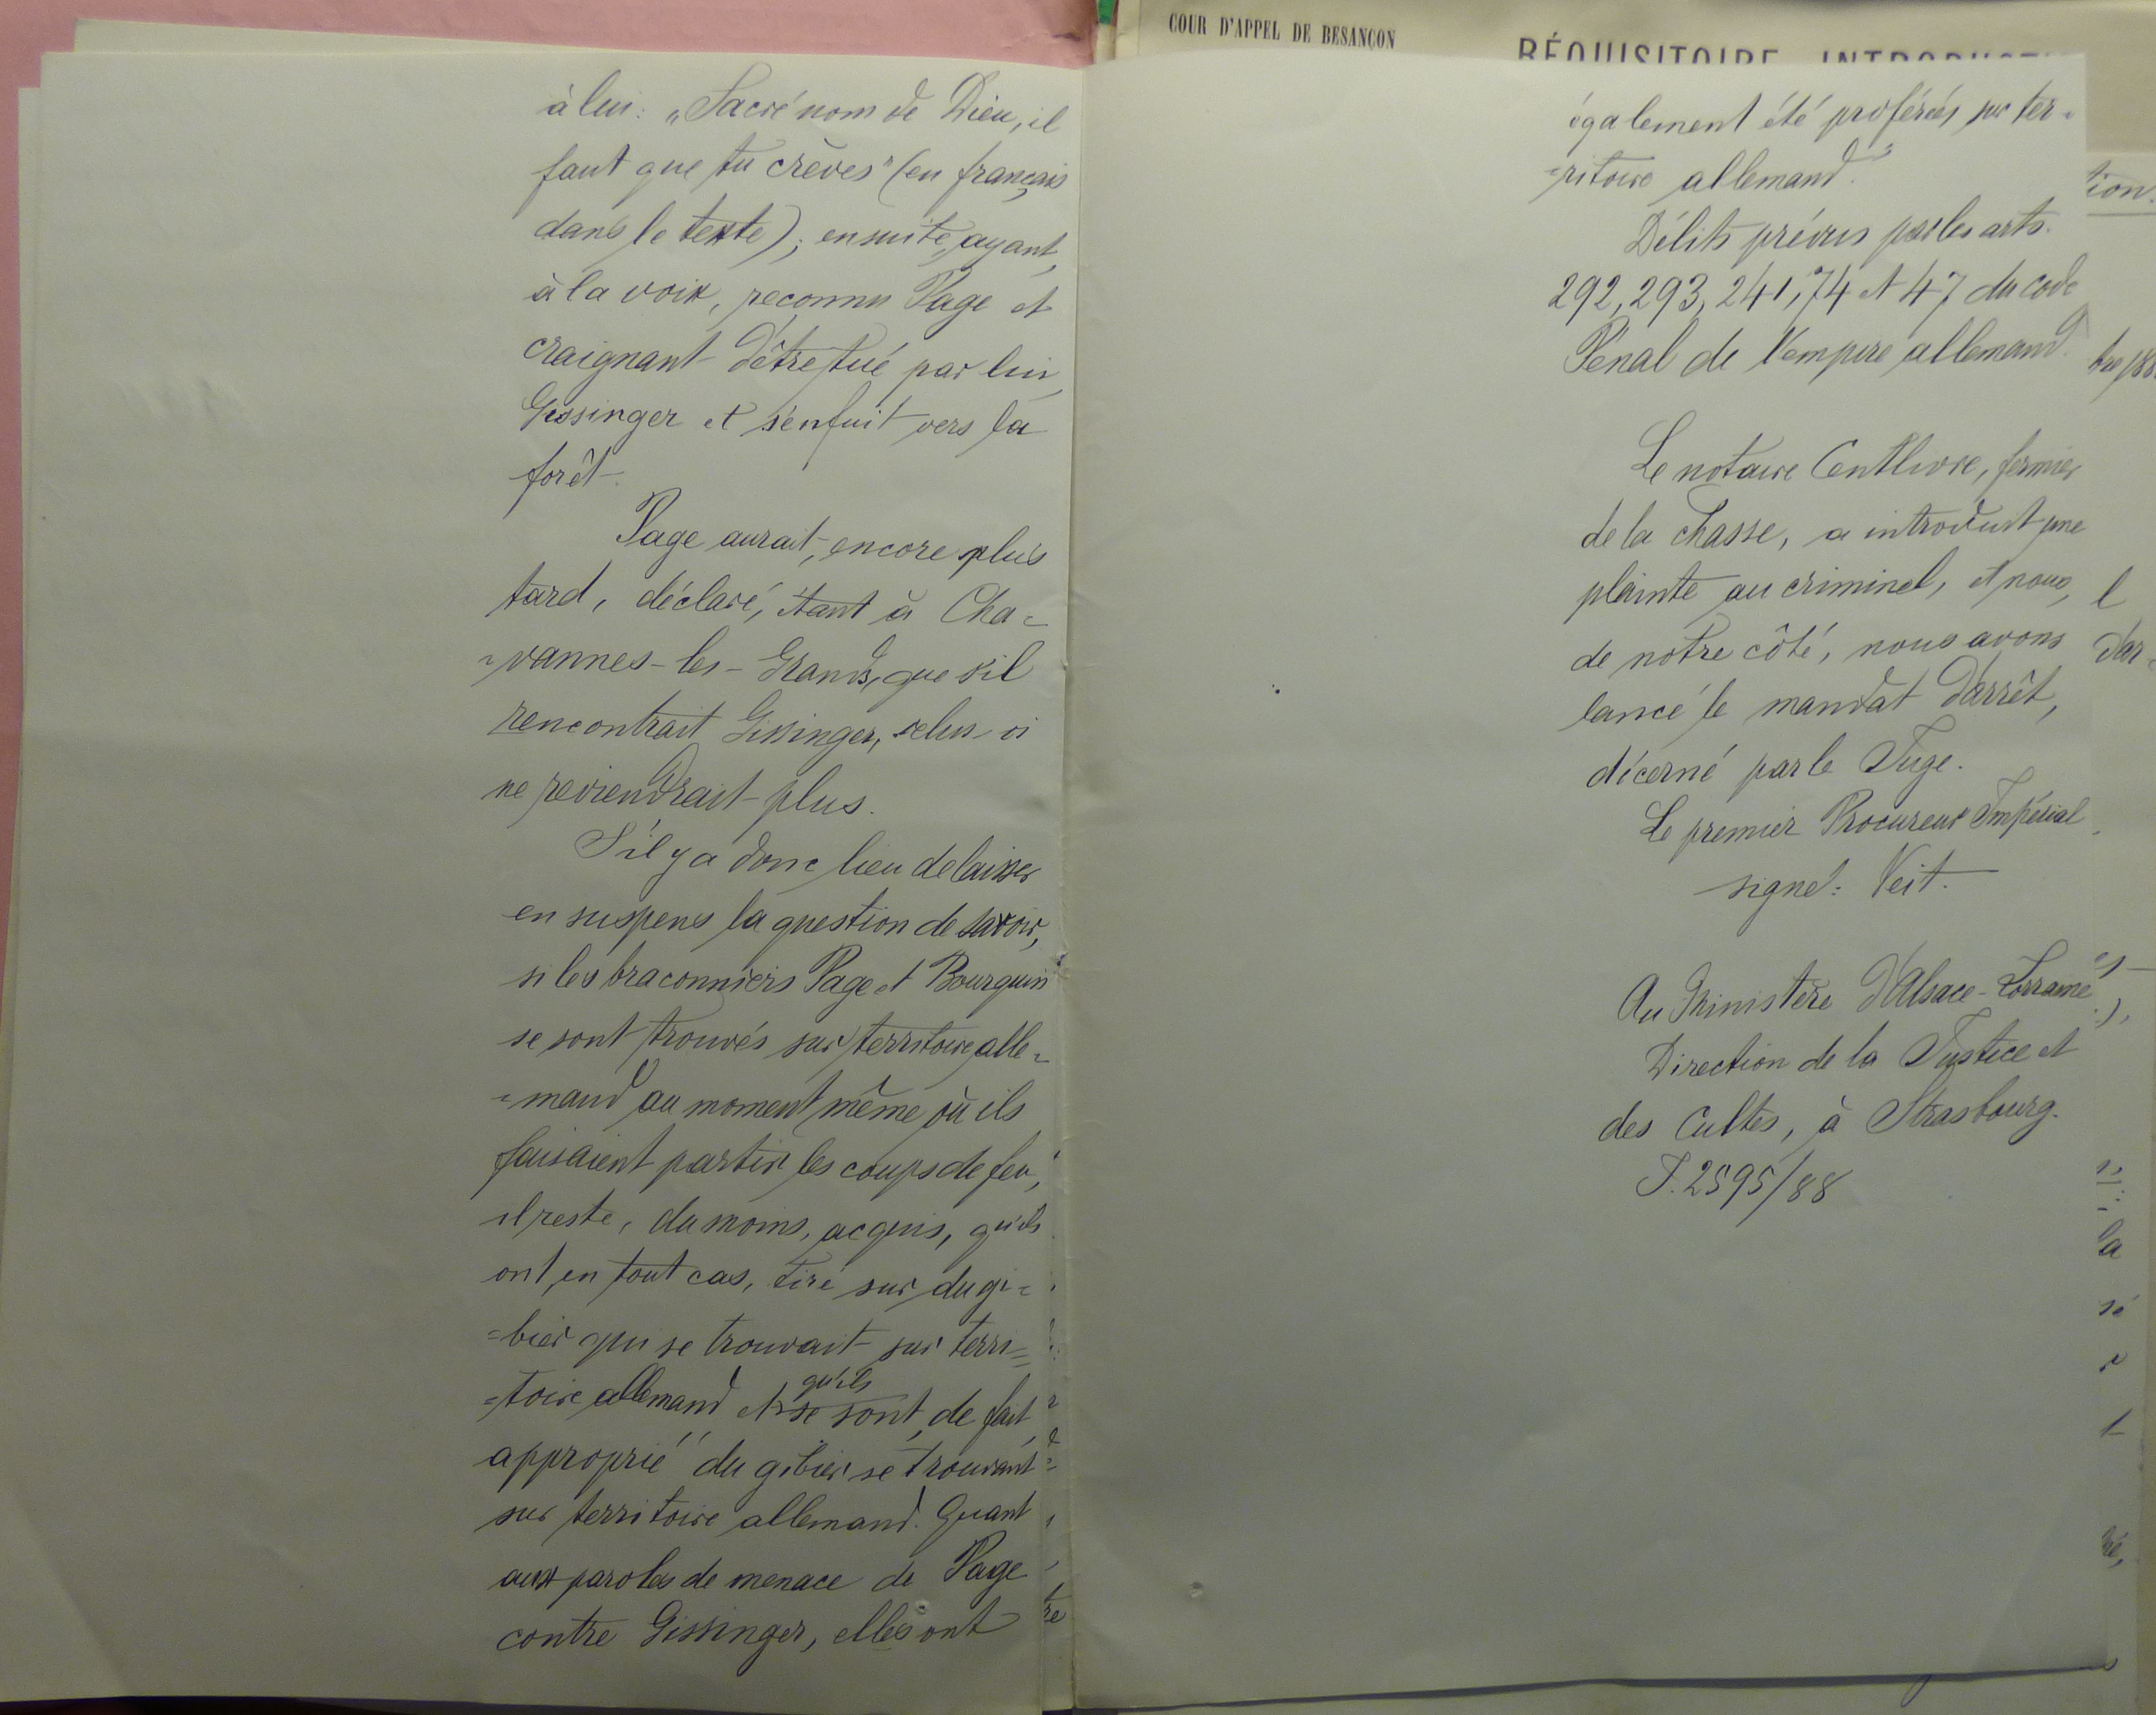 à lui: „Sacré nom de Dieu, il
faut que tu crèves" (en français
dans le texte); ensuite, ayant,
à la voix, reconnu Page et
craignant d'être tué par lui,
Gissinger et s'enfuit vers la
forêt.
Page aurait, encore plus
tard, déclaré, étant à Cha=
=vannes-les-Grands, que s'il
rencontrait Gissinger, celui-ci
ne reviendrait plus.
S'il y a donc lieu de laisser
en suspens la question de savoir,
si les braconniers Page et Bourquin
se sont trouvés sur territoire alle=
=mand au moment même où ils
faisaient partir les coups de feu,
il reste, du moins, acquis, qu'ils
ont, en tout cas, tiré sur du gi=
=bier qui se trouvait sur terri=
=toire allemand et qu'ils se sont, de fait,
approprié du gibier se trouvant
sur territoire allemand. Quant
aux paroles de menace de Page
contre Gissinger, elles ont
COUR D'APPEL DE BESANÇON
RÉQUISITOIRE
également été proférées sur ter=
=ritoire allemand.
Délits prévus par les arts.
292, 293, 241, 74 et 47 du code
Pénal de l'empire allemand.
Le notaire Centlivre, fermier
de la chasse, a introduit une
plainte au criminel, et nous,
de notre côté, nous avons
lancé le mandat d'arrêt,
décerné par le Juge.
Le premier Procureur Impérial
signé: Veit.
Au Ministère d'Alsace-Lorraine
Direction de la Justice et
des Cultes, à Strasbourg.
J. 2595/88